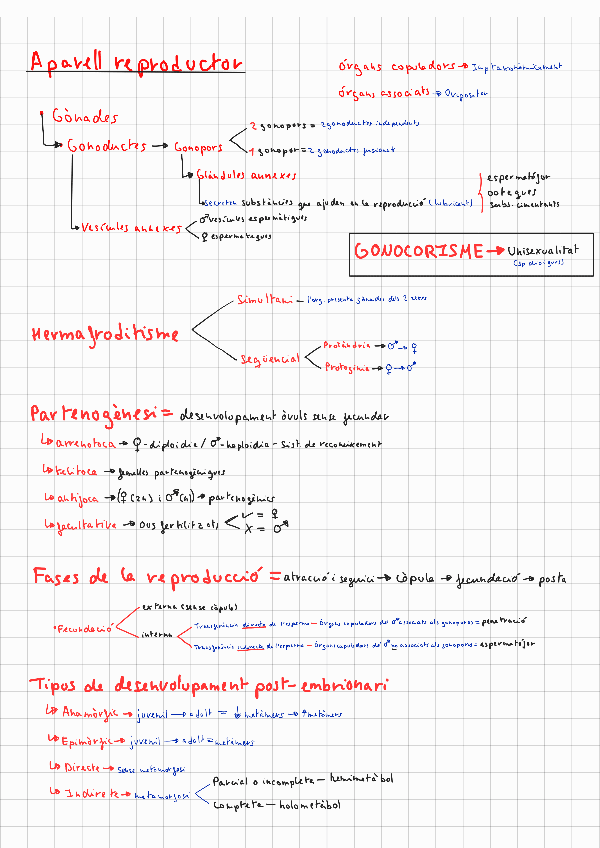 Aparell reproductor
òrgans copuladors →
òrgans associats → Ovopositor
Gònades
Gonoductes → Gonopors
2 gonopors = 2 gonoductes independents
1 gonopor = 2 gonoductes fusionats
Glàndules annexes
Secreten substàncies que ajuden en la reproducció (lubricant)
espermatòfor
ooteques
subs. cimentants
Vesícules annexes
♂ vesícules espermàtiques
♀ espermateques
GONOCORISME → Unisexualitat
Hermafroditisme
Simultani – l'org. presenta gònades dels 2 sexes
Seqüencial
Protàndria → ♂ → ♀
Protogínia → ♀ → ♂
Partenogènesi = desenvolupament òvuls sense fecundar
↳ arrenotoca → ♀ - diploidia / ♂ - haploidia – Sist. de reconeixement
↳ telitoca → femelles partenogèniques
↳ (♀ (2n) i ♂ (n)) → partenogènics
↳ facultativa → Ous fertilitzats
✓ = ♀
X = ♂
Fases de la reproducció = atracció i seguici → còpula → fecundació → posta
• Fecundació
externa (sense còpula)
interna
Transferència directa de l'esperma – Òrgans copuladors del ♂ associats als gonopors = penetració
Transferència indirecta de l'esperma – Òrgans copuladors del ♂ no associats als gonopors = espermatòfor
Tipus de desenvolupament post-embrionari
↳ Anamòrfic → juvenil → adult = ↓ metàmers → + metàmers
↳ Epimòrfic → juvenil → adult = metàmers
↳ Directe → Sense metamorfosi
↳ Indirecte → metamorfosi
Parcial o incompleta – hemimetàbol
Completa – holometàbol